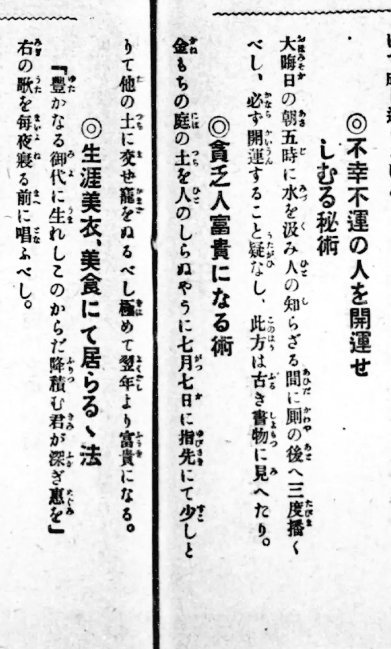 ◎不幸不運の人を開運せ
しむる秘術
大晦日の朝五時に水を汲み人の知らざる間に厠の後へ三度播く
べし、必ず開運すること疑なし、此方は古き書物に見へたり。
◎貪乏人富貴になる術
金もちの庭の土を人のしらぬやうに七月七日に指先にて少しと
りて他の土に交せ竈をぬるべし極めて翌年より富貴になる。
◎生涯美衣、美食にて居らるゝ法
『豊かなる御代に生れしこのからだ降積む君が深ぎ惠を』
右の歌を毎夜寝る前に唱ふべし。